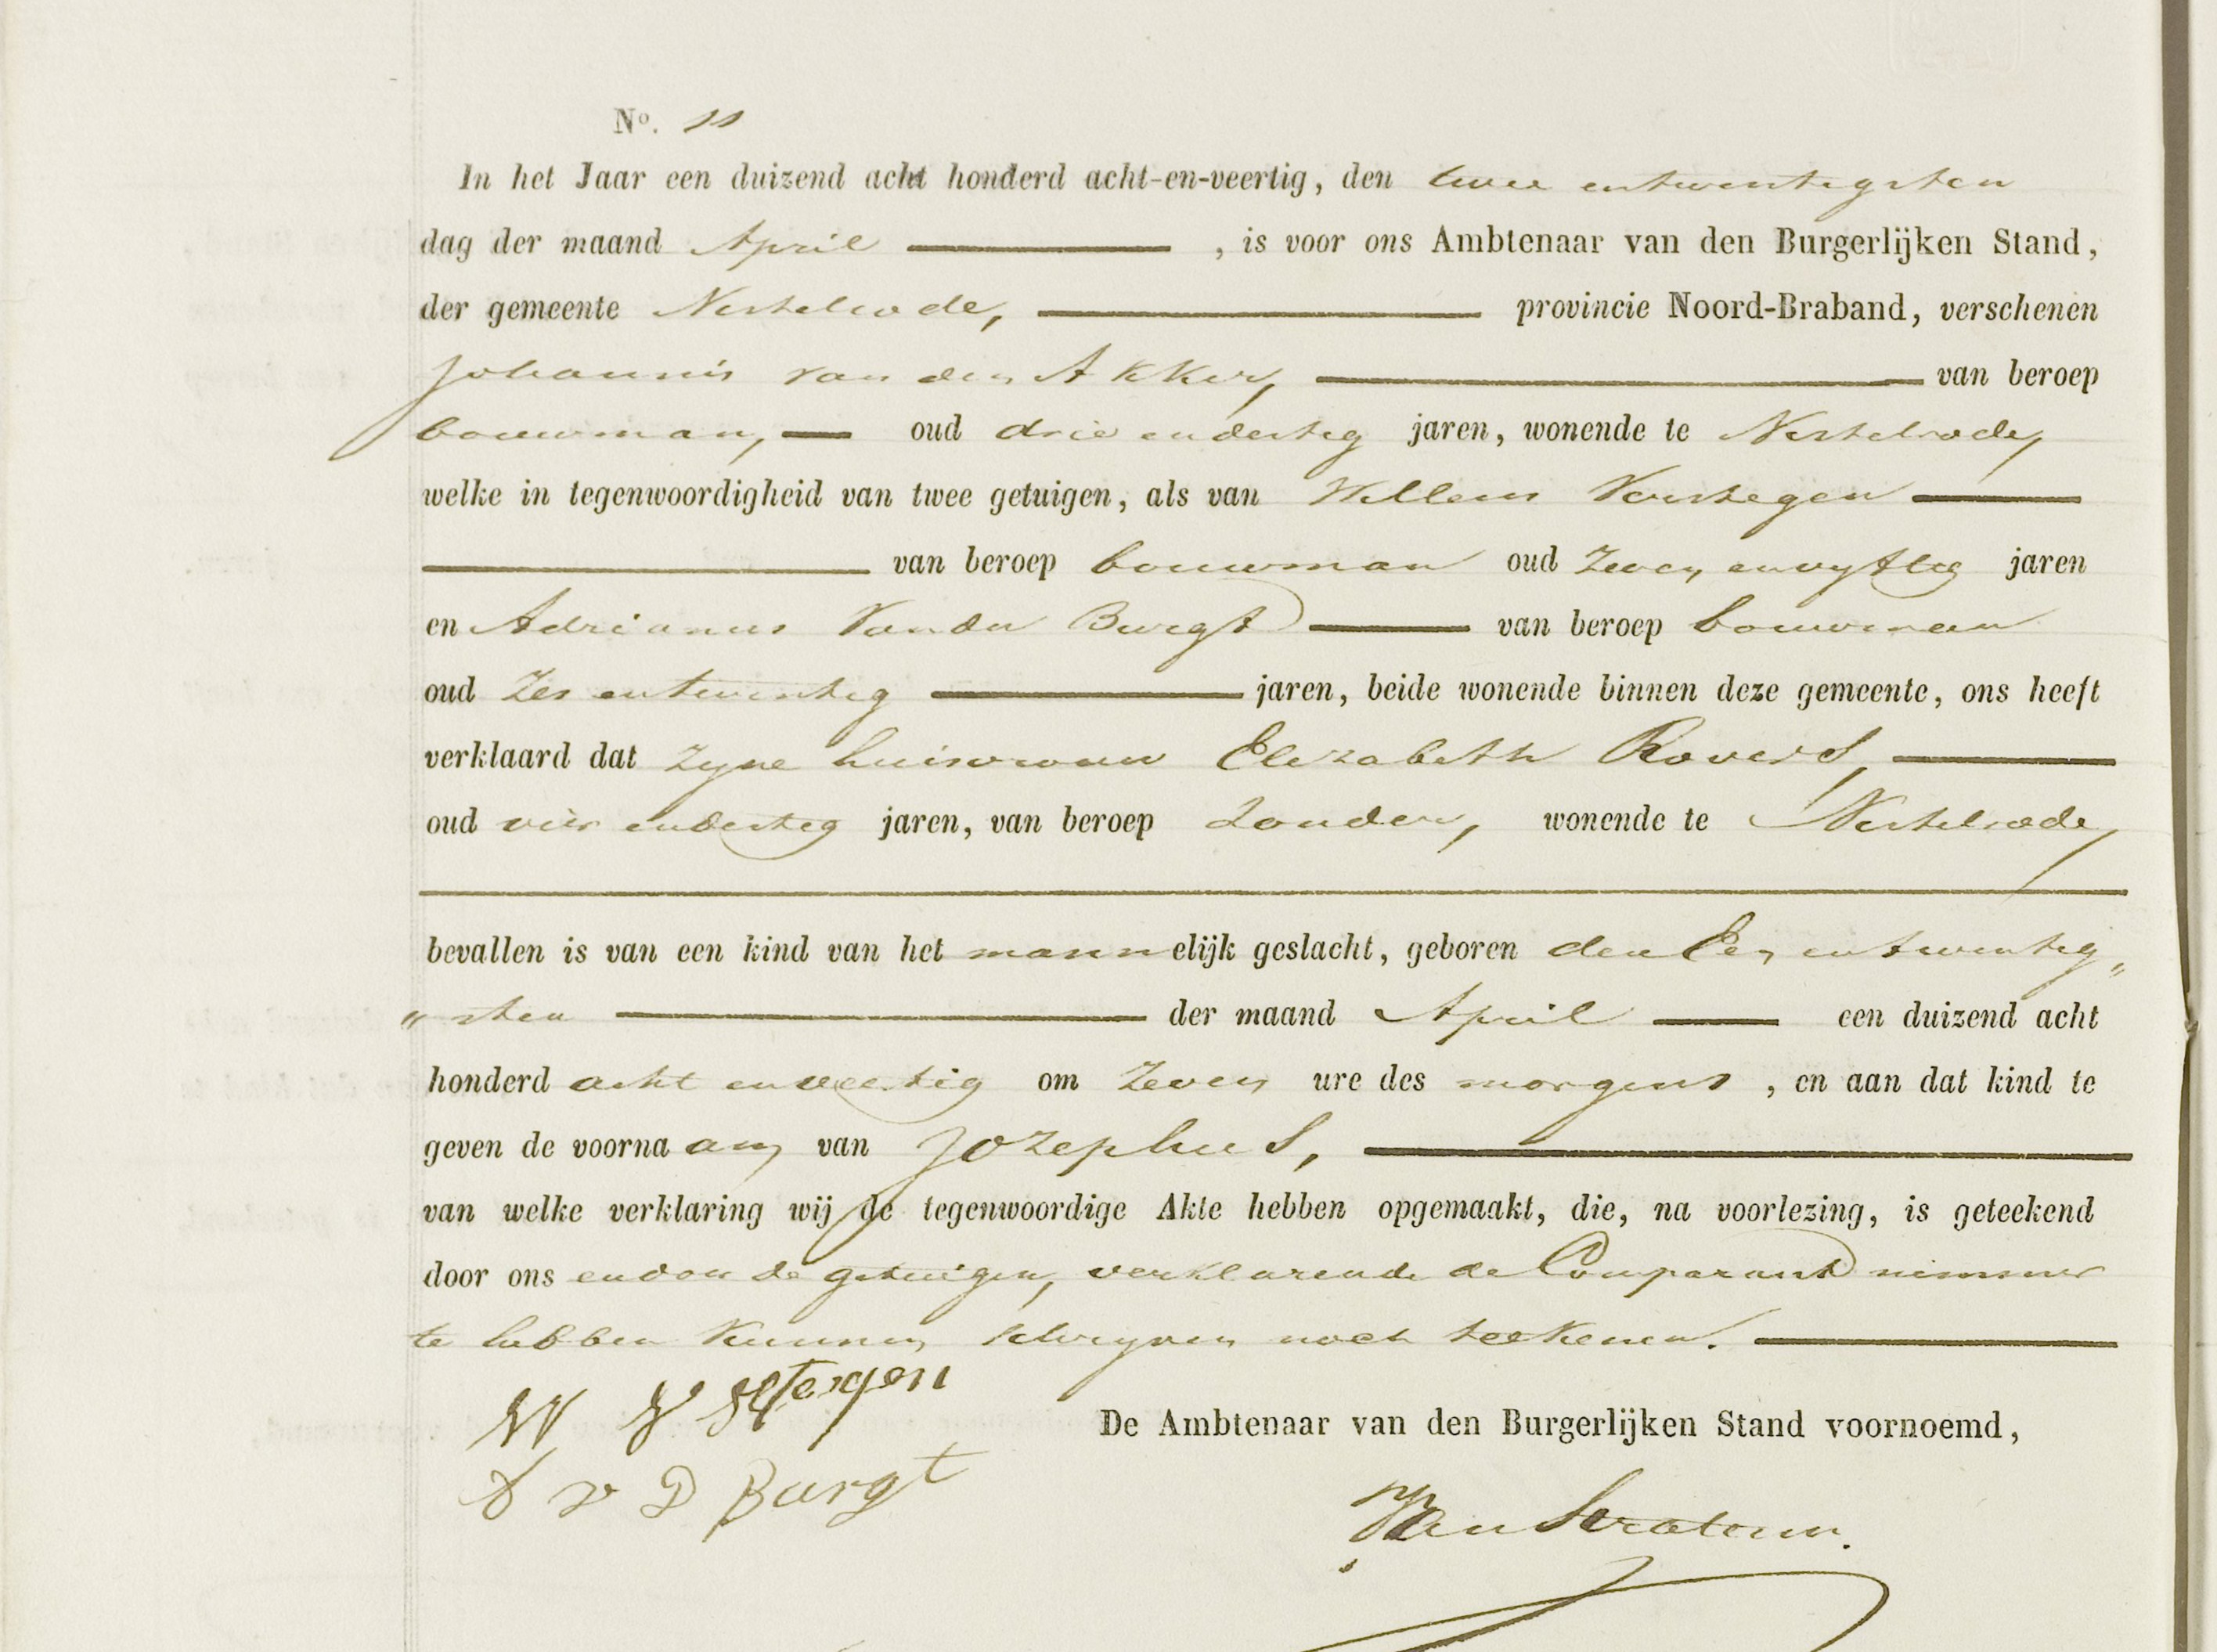 No. 11
In het Jaar een duizend acht honderd acht-en-veertig, den twee entwentigsten
dag der maand April , is voor ons Ambtenaar van den Burgerlijken Stand,
der gemeente Nistelrode, provincie Noord-Braband, verschenen
Johannis van den Akker, van beroep
bouwman, oud drie endertig jaren, wonende te Nistelrode,
welke in tegenwoordigheid van twee getuigen, als van Willem Verstegen
van beroep bouwman oud Zeven envyftig jaren
en Adrianus Vander Burgt van beroep bouwman
oud Zes entwintig jaren, beide wonende binnen deze gemeente, ons heeft
verklaard dat zyne huisvrouw Elizabeth Rovers,
oud vier endertig jaren, van beroep Zonder, wonende te Nistelrode,
bevallen is van een kind van het mannelijk geslacht, geboren den Een entwintig„
„sten der maand April een duizend acht
honderd acht enveertig om Zeven ure des morgens , en aan dat kind te
geven de voornaam van Jozephus,
van welke verklaring wij de tegenwoordige Akte hebben opgemaakt, die, na voorlezing, is geteekend
door ons endoor de getuigen, verklarende de Comparant nimmer
te hebben Kunnen schryven noch teekenen.
W V Stegen
De Ambtenaar van den Burgerlijken Stand voornoemd,
A v D Burgt